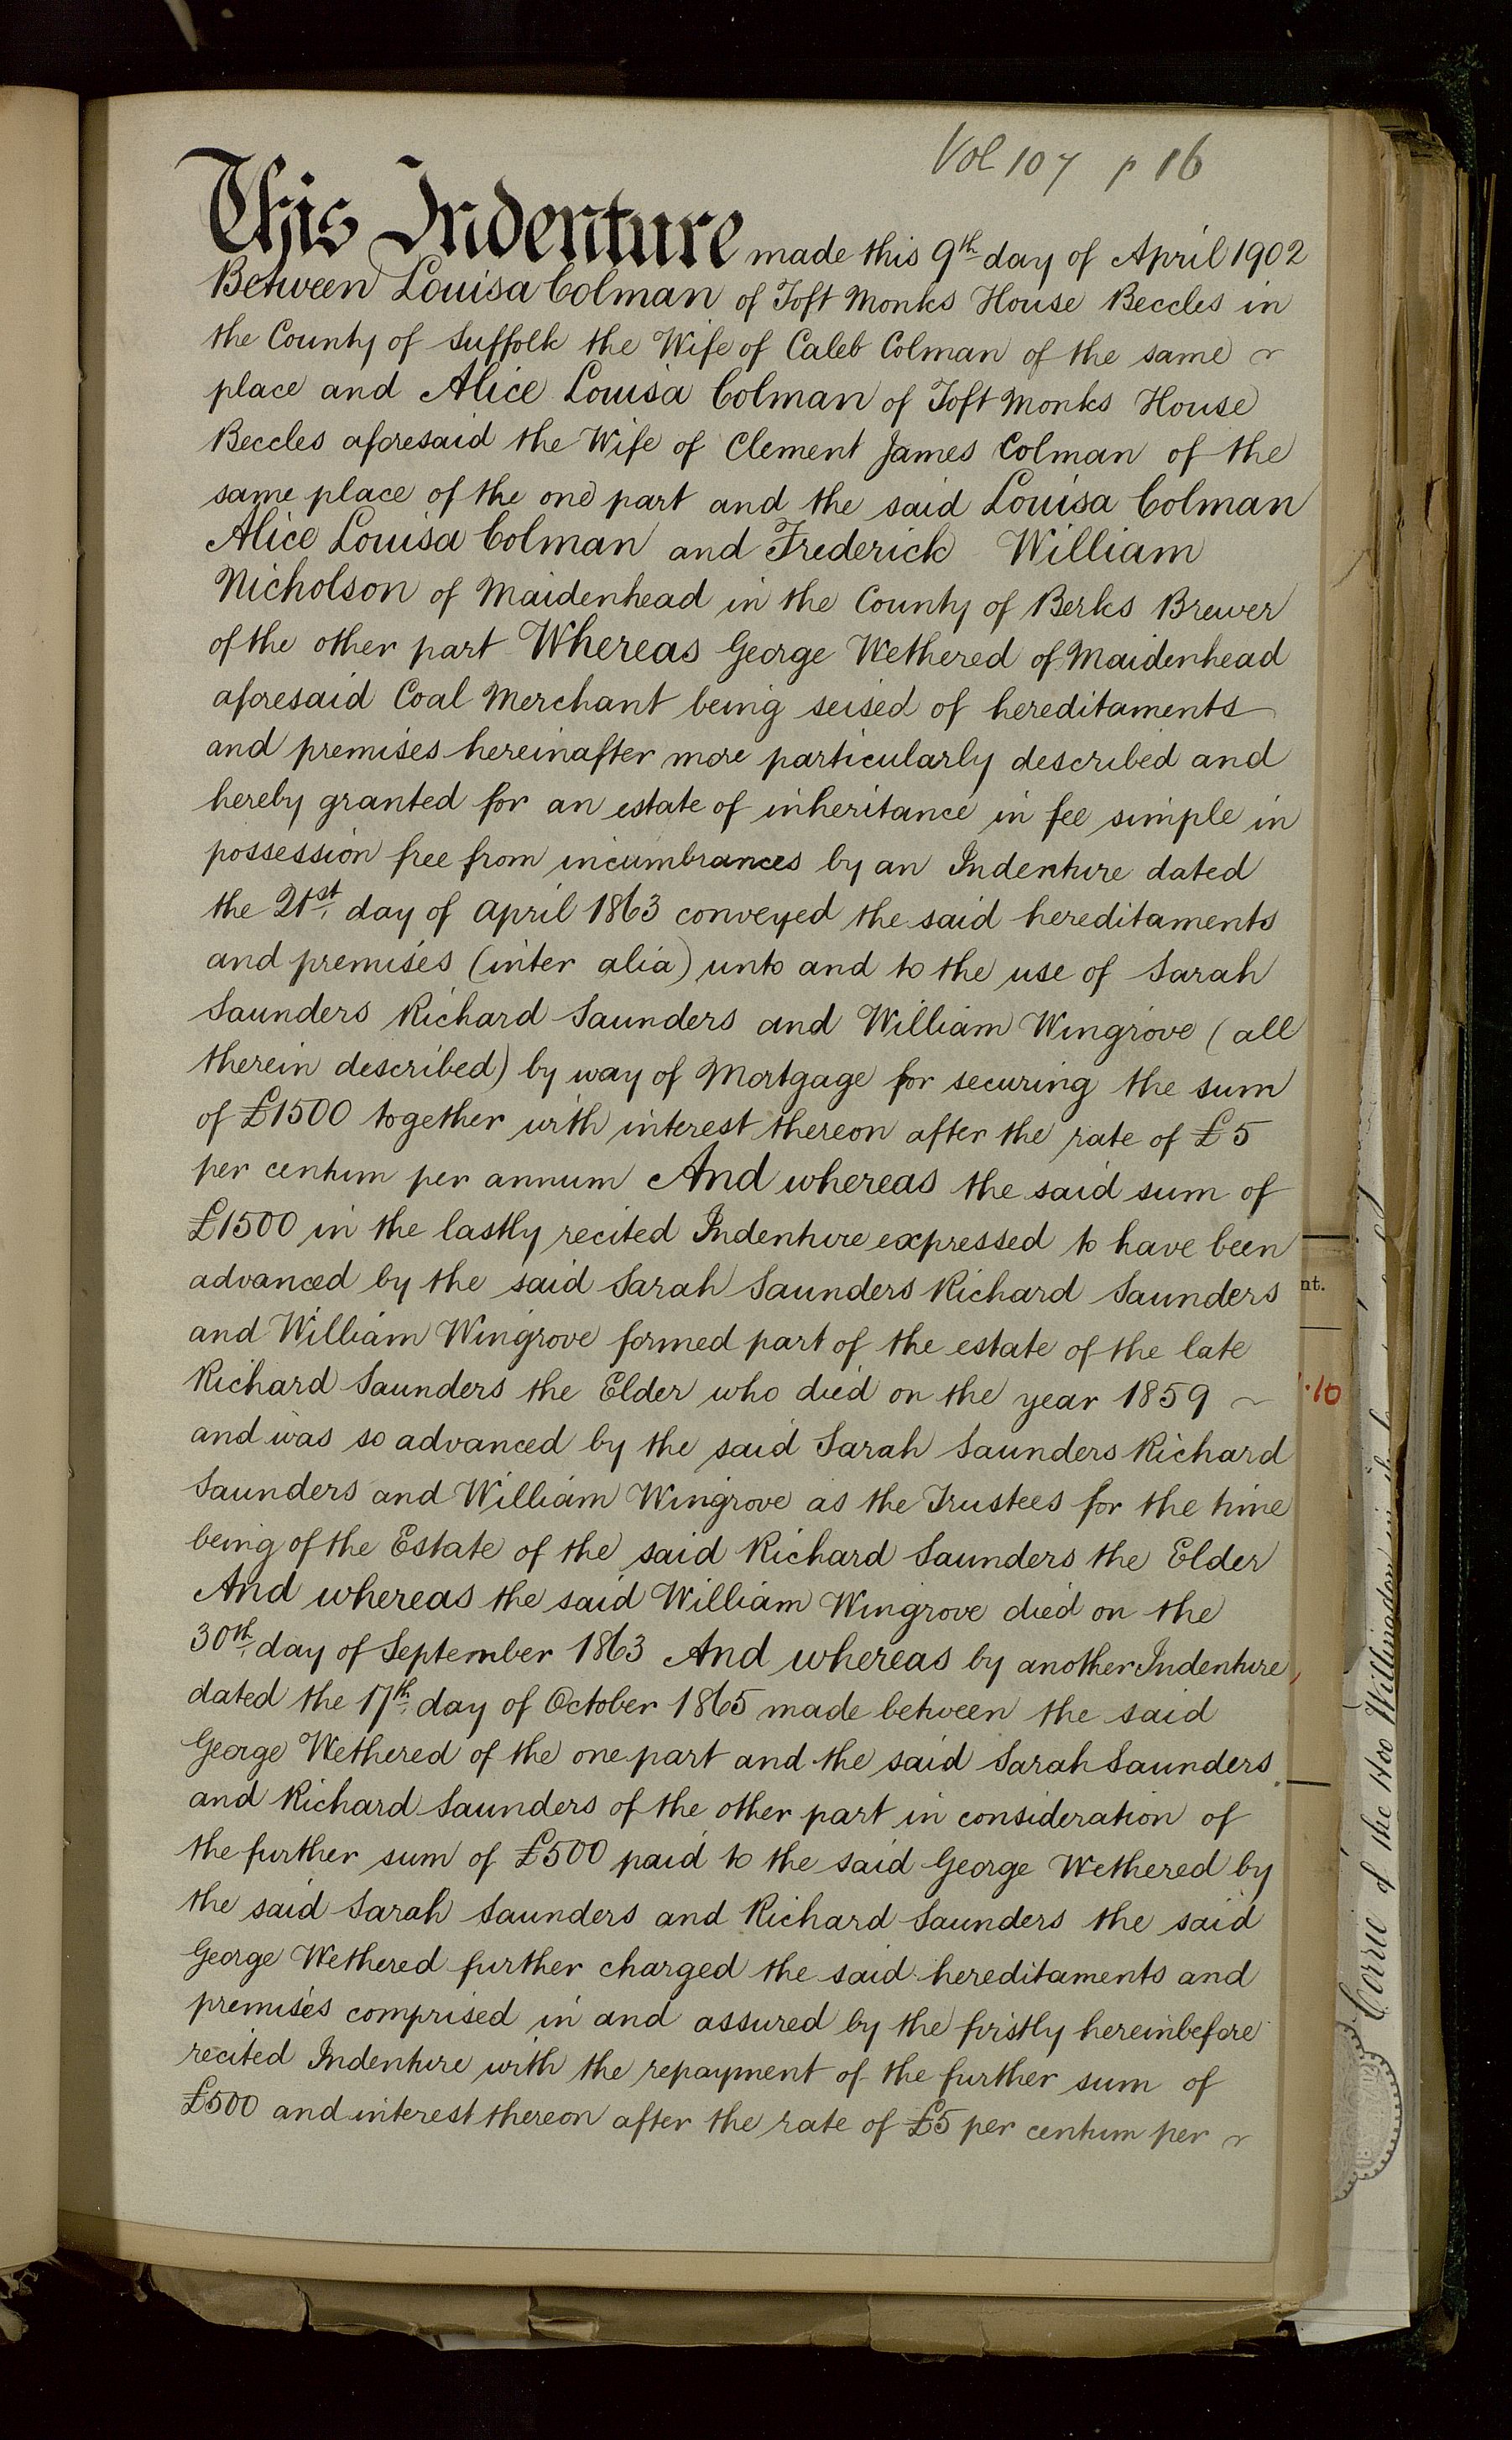 Vol 107 p 16
This Indenture made this 9th day of April 1902
Between Louisa Colman of Toft Monks House Beccles in
the County of Suffolk the Wife of Caleb Colman of the same
place and Alice Louisa Colman of Toft Monks House
Beccles aforesaid the Wife of Clement James Colman of the
same place of the one part and the said Louisa Colman
Alice Louisa Colman and Frederick William
Nicholson of Maidenhead in the County of Berks Brewer
of the other part Whereas George Wethered of Maidenhead
aforesaid Coal Merchant being seised of hereditaments
and premises hereinafter more particularly described and
hereby granted for an estate of inheritance in fee simple in
possession free from incumbrances by an Indenture dated
the 21st day of April 1863 conveyed the said hereditaments
and premises (inter alia) unto and to the use of Sarah
Saunders Richard Saunders and William Wingrove (all
therein described) by way of Mortgage for securing the sum
of £1500 together with interest thereon after the rate of £5
per centum per annum And whereas the said sum of
£1500 in the lastly recited Indenture expressed to have been
advanced by the said Sarah Saunders Richard Saunders
and William Wingrove formed part of the estate of the late
Richard Saunders the Elder who died on the year 1859
and was so advanced by the said Sarah Saunders Richard
Saunders and William Wingrove as the Trustees for the time
being of the Estate of the said Richard Saunders the Elder
And whereas the said William Wingrove died on the
30th day of September 1863 And whereas by another Indenture
dated the 17th day of October 1865 made between the said
George Wethered of the one part and the said Sarah Saunders
and Richard Saunders of the other part in consideration of
the further sum of £500 paid to the said George Wethered by
the said Sarah Saunders and Richard Saunders the said
George Wethered further charged the said hereditaments and
premises comprised in and assured by the firstly hereinbefore
recited Indenture with the repayment of the further sum of
£500 and interest thereon after the rate of £5 per centum per
nt.
10
Corrie of the Hoo Willingdon in